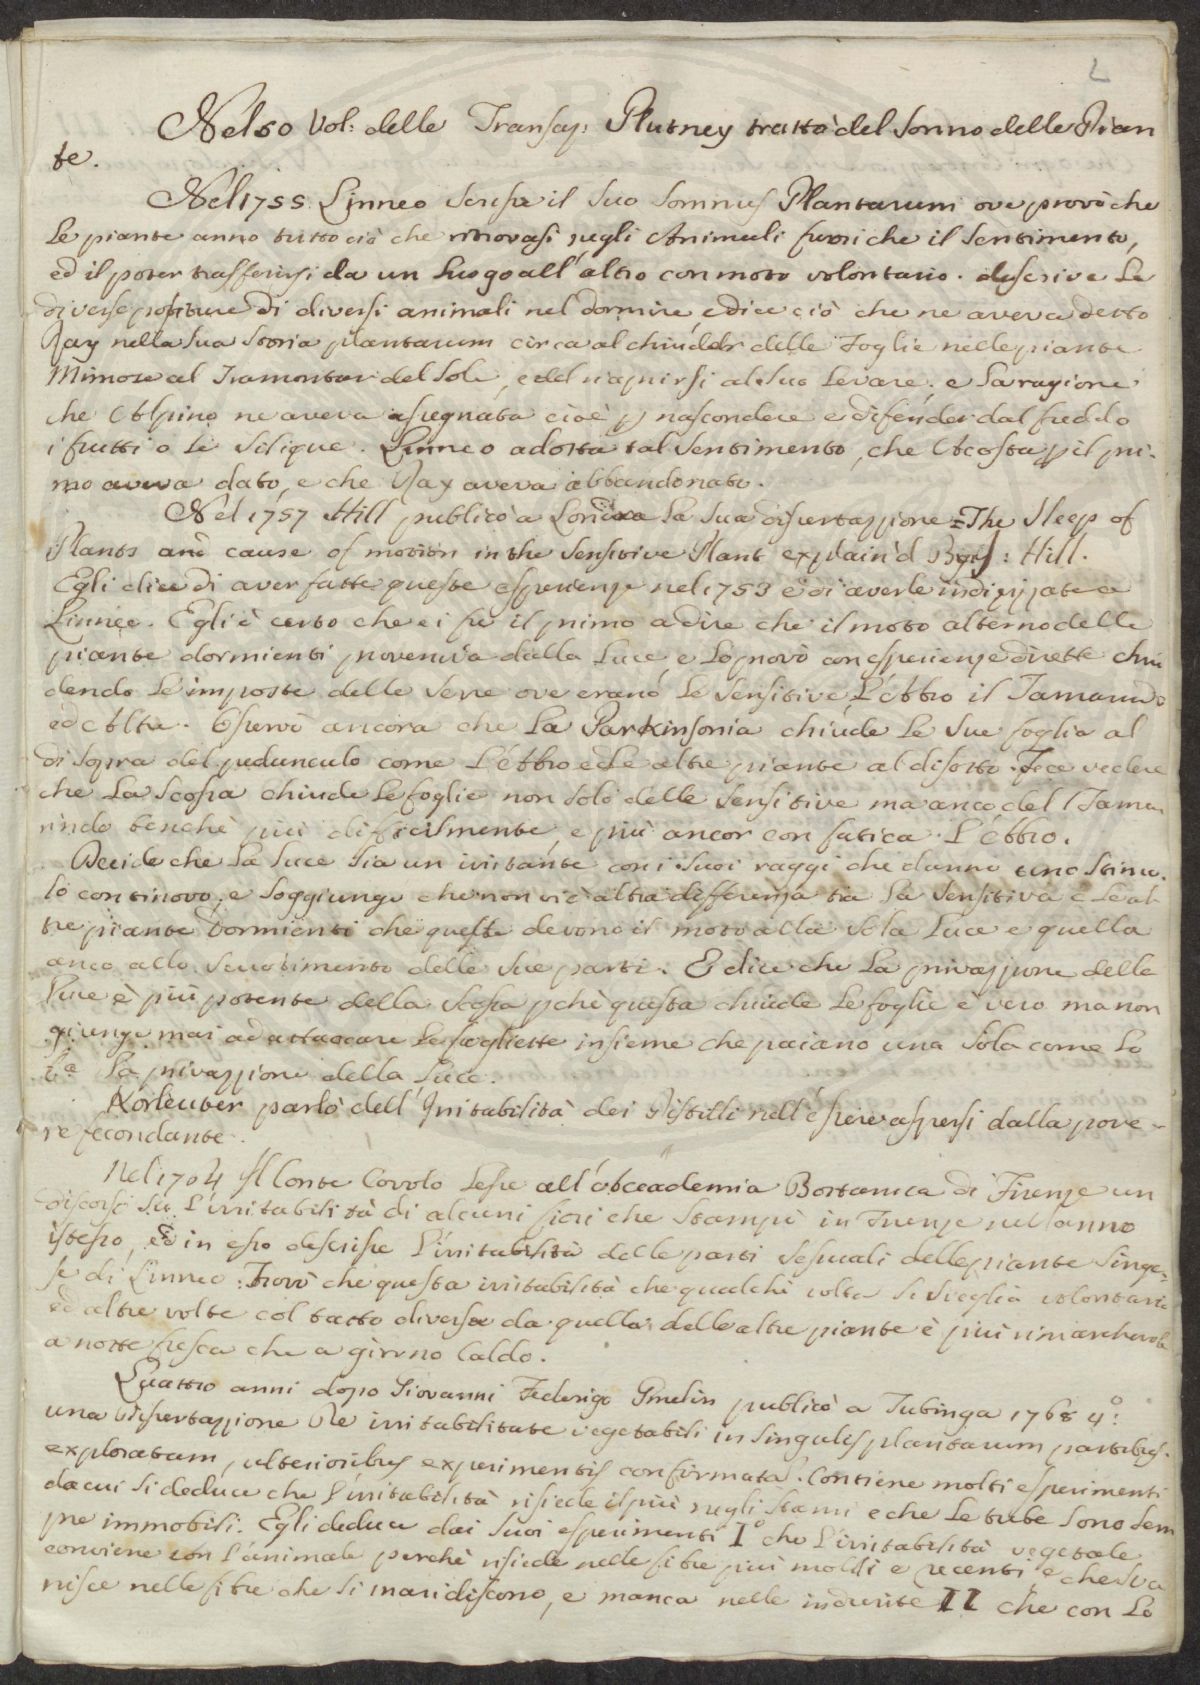 2
Nel 50 Vol: delle Transaz: Plutney trattò del Sonno delle Pian
te.
Nel 1755 Linneo scrisse il suo Somnus Plantarum ove provò che
le piante anno tutto ciò che ritrovasi negli Animali fuori che il sentimento,
ed il poter trasferirsi da un luogo all'altro con moto volontario. descrive le
diverse positure di diversi animali nel dormire, e dice ciò che ne aveva detto
Ray nella sua Storia plantarum circa al chiuder delle foglie nelle piante
Mimose al tramontar del Sole, e del riaprirsi al suo levare. e la ragione
che Alpino ne aveva assegnata cioè p nascondere e difender dal freddo
i frutti o le silique. Linneo adotta tal sentimento, che Acosta p il pri-
mo aveva dato, e che Ray aveva abbandonato.
Nel 1757 Hill publicò a Londra la sua dissertazzione = The Sleep of
Plants and cause of motion in the Sensitive Plant explain'd By J: Hill.
Egli dice di aver fatte queste esperienze nel 1753 e di averle indirizzate a
Linneo. Egli è certo che ei fu il primo a dire che il moto alterno delle
piante dormienti proveniva dalla luce e lo provò con esperienze dirette chiu
dendo le imposte delle serre ove erano le sensitive, l'Abbro il Tamarindo
ed Altre. Osservò ancora che la Parkinsonia chiude le sue foglie al
di sopra del peduncolo come l'Abbro ed le altre piante al disotto. Fece vedere
che la scossa chiude le foglie non solo delle sensitive ma anco del Tama
rindo benchè più difficilmente e più ancor con fatica l'Abbro.
Decide che la luce sia un irritante con i suoi raggi che danno uno stimo-
lo continovo, e soggiunge che non vi è altra differenza tra la sensitiva e le al-
tre piante dormienti che queste devono il moto alla sola luce e quella
anco allo scuotimento delle sue parti. E dice che la privazzione della
luce è più potente della scossa pchè questa chiude le foglie è vero ma non
giunge mai ad attaccare le fogliette insieme che paiano una sola come lo
fa la privazzione della luce.
Korleuter parlò dell'Irritabilità dei Pistilli nell'essere aspersi dalla polve-
re fecondante.
Nel 1764 Il Conte Covolo lesse all'Accademia Bottanica di Firenze un
discorso su l'irritabilità di alcuni fiori che stampò in Firenze nell'anno
istesso, ed in esso descrisse l'irritabilità delle parti sessuali delle piante Singe-
se di Linneo. Trovò che questa irritabilità che qualchè volta si sveglia volontaria
ed altre volte col tatto diversa da quella delle altre piante è più rimarchevole
a notte fresca che a giorno caldo.
Quattro anni dopo Giovanni Federigo Gmelin publicò a Tubinga 1768 4°:
una Dissertazzione De irritabilitate vegetabili in singulis plantarum partibus
exploratam, ulterioribus experimentis confirmata. Contiene molti esperimenti
da cui si deduce che l'irritabilità risiede il più negli stami e che le tube sono sem
pre immobili. Egli deduce dai suoi esperimenti I° che l'irritabilità vegetale
conviene con l'animale perchè risiede nelle fibre più molli e recenti e che sva
nisce nelle fibre che si inaridiscono, e manca nelle indurite II che con lo